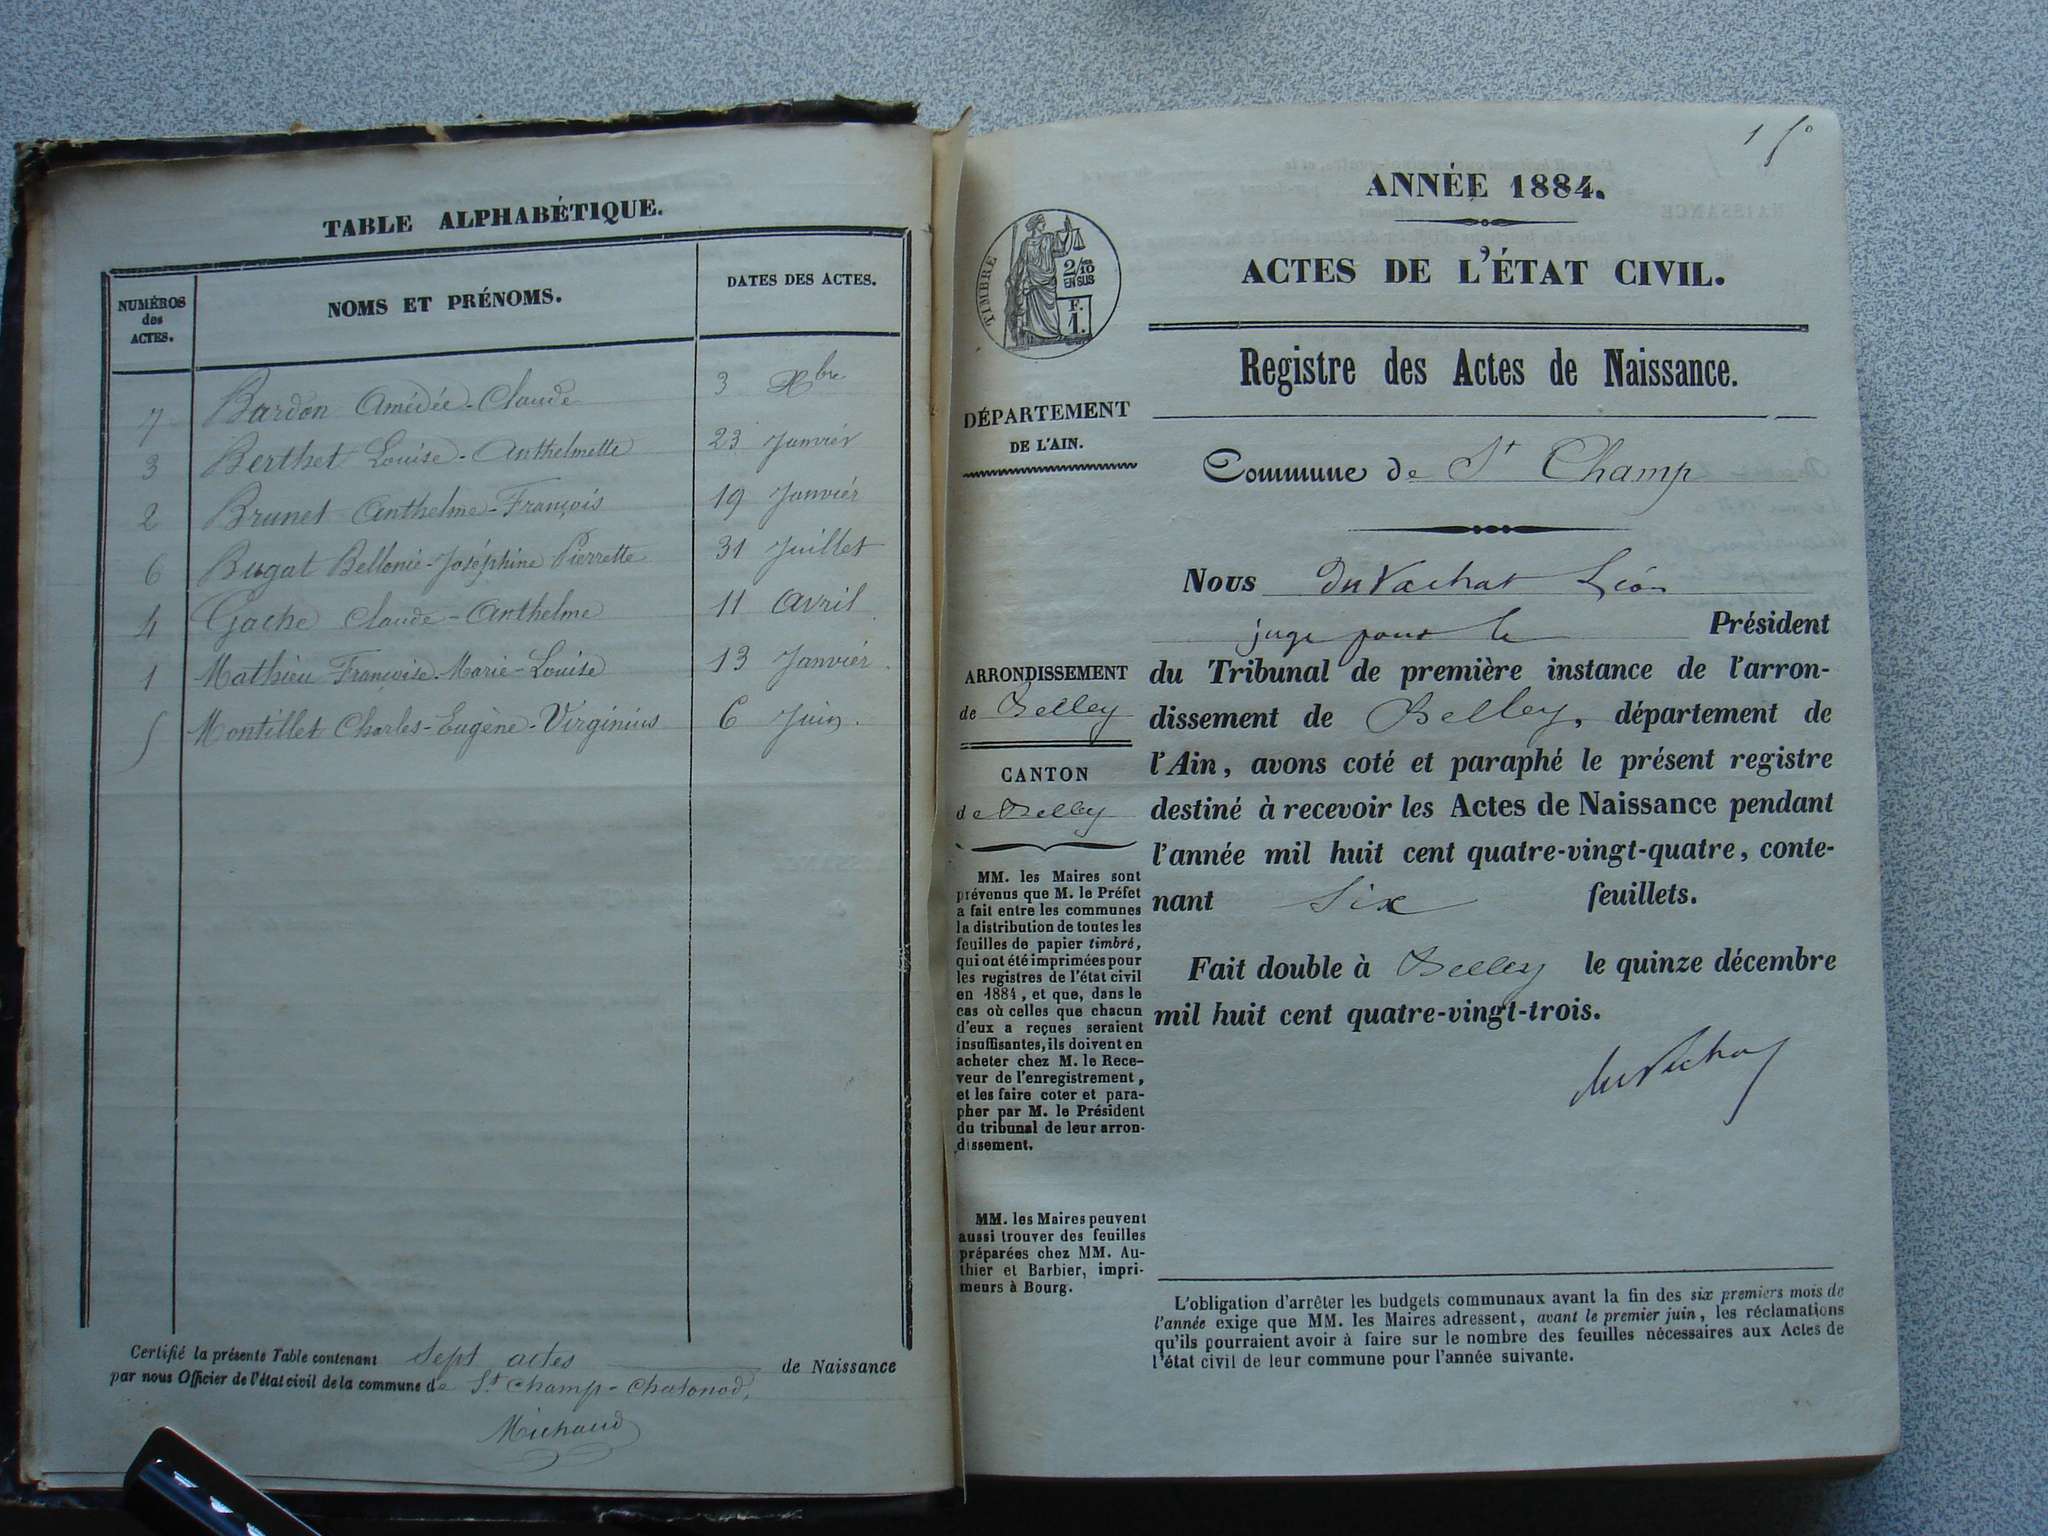 TABLE ALPHABÉTIQUE.
NUMÉROS
des
ACTES.
NOMS ET PRÉNOMS.
DATES DES ACTES.
7 Bardon Amédée-Claude 3 Xbre
3 Berthet Louise-Anthelmette 23 Janvier
2 Brunet Anthelme-François 19 Janvier
6 Bugat Bellonie-Joséphine Pierrette 31 Juillet
4 Gache Claude-Anthelme 11 Avril
1 Mathieu Françoise Marie-Louise 13 Janvier
5 Montillet Charles-Eugène-Virginius 6 Juin.
Certifié la présente Table contenant sept actes de Naissance
par nous Officier de l'état civil de la commune de St Champ-Chatonod,
Michaud
1
ANNÉE 1884.
ACTES DE L'ÉTAT CIVIL.
TIMBRE
2/10
EN SUS
F.
1.
Registre des Actes de Naissance.
DÉPARTEMENT
DE L'AIN.
Commune de St Champ
Nous du Vachat Léon
juge pour le Président
du Tribunal de première instance de l'arron-
dissement de Belley, département de
l'Ain, avons coté et paraphé le présent registre
destiné à recevoir les Actes de Naissance pendant
l'année mil huit cent quatre-vingt-quatre, conte-
nant Six feuillets.
Fait double à Belley le quinze décembre
mil huit cent quatre-vingt-trois.
du Vachat
ARRONDISSEMENT
de Belley
CANTON
de Belley
MM. les Maires sont
prévenus que M. le Préfet
a fait entre les communes
la distribution de toutes les
feuilles de papier timbré,
qui ont été imprimées pour
les registres de l'état civil
en 1884, et que, dans le
cas où celles que chacun
d'eux a reçues seraient
insuffisantes, ils doivent en
acheter chez M. le Rece-
veur de l'enregistrement,
et les faire coter et para-
pher par M. le Président
du tribunal de leur arron-
dissement.
MM. les Maires peuvent
aussi trouver des feuilles
préparées chez MM. Au-
thier et Barbier, impri-
meurs à Bourg.
L'obligation d'arrêter les budgets communaux avant la fin des six premiers mois de
l'année exige que MM. les Maires adressent, avant le premier juin, les réclamations
qu'ils pourraient avoir à faire sur le nombre des feuilles nécessaires aux Actes de
l'état civil de leur commune pour l'année suivante.